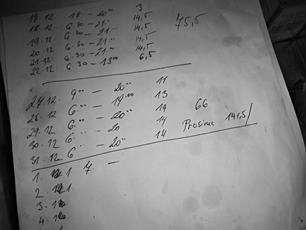 3
17.12. 18 - 20⁰⁰
18.12. 6.30 - 21.- 14,5
19.12. 6.30 - 21.- 14,5 75,5
20.12 6.30 - 21.- 14,5
21.12 6.30 - 21⁰⁰ 14,5
22.12 6.30 - 13⁰⁰ 6,5
27.12. 9⁰⁰ - 20⁰⁰ 11
28.12. 6⁰⁰ - 19⁰⁰ 13
29.12. 6⁰⁰ - 20⁰⁰ 14 66
30.12 6⁰⁰ - 20 14
31.12 6⁰⁰ - 20⁰⁰ 14 Prosinec 141,5/
1. 1 7 -
2.
3.
4.